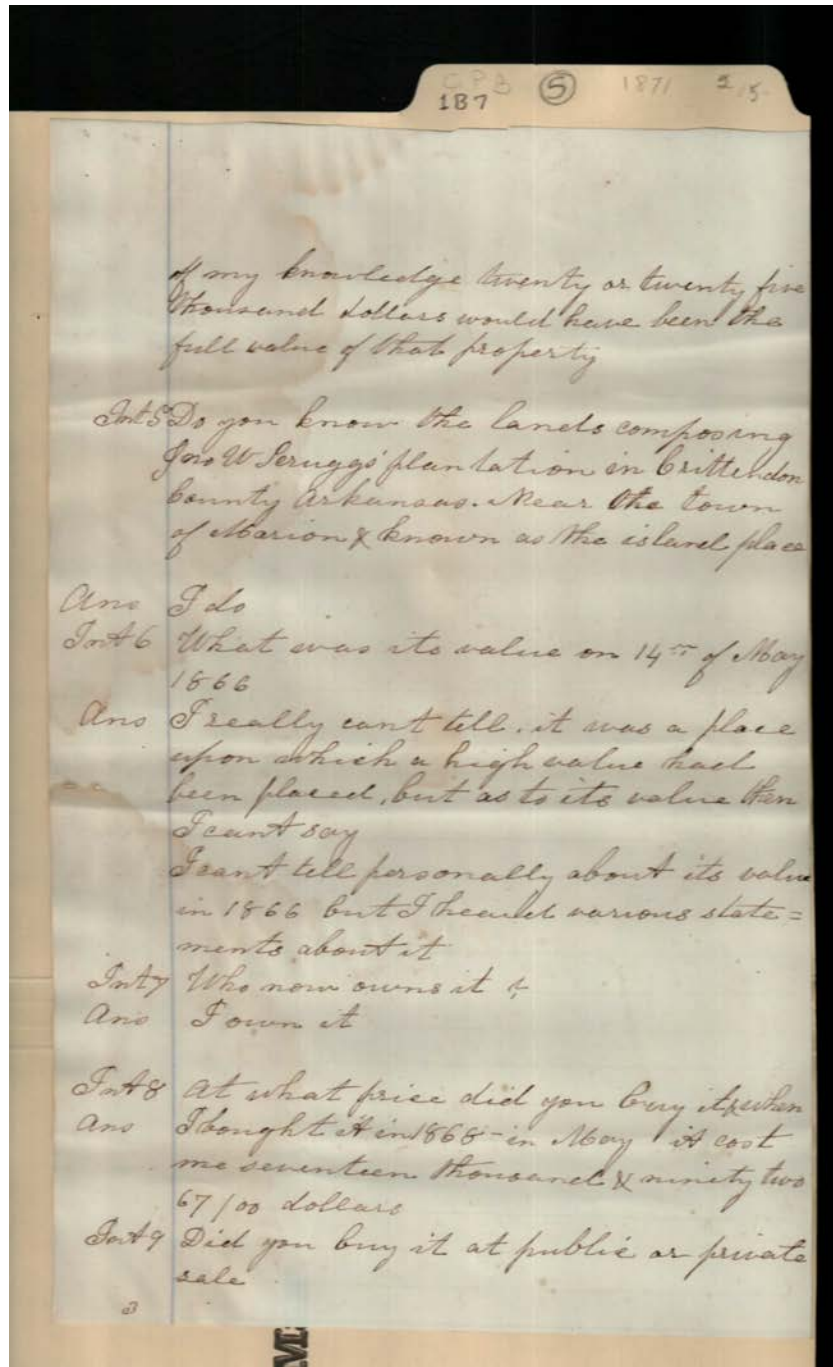 CPB (5) 1871 2/5
1B7
of my knowledge twenty or twenty five
thousand dollars would have been the
full value of that property
Int 5 Do you know the lands composing
Jno W Scruggs' plantation in Crittendon
County Arkansas. Near the town
of Marion & known as the island place
Ans I do
Int 6 What was its value on 14th of May
1866
Ans I really cant tell. it was a place
upon which a high value had
been placed, but as to its value then
I cant say
I cant tell personally about its value
in 1866 but I heard various state=
ments about it
Int 7 Who now owns it ?
Ans I own it
Int 8 At what price did you buy it & when
Ans I bought it in 1868 - in May it cost
me seventeen thousand & ninety two
67/00 dollars
Int 9 Did you buy it at public or private
sale
3